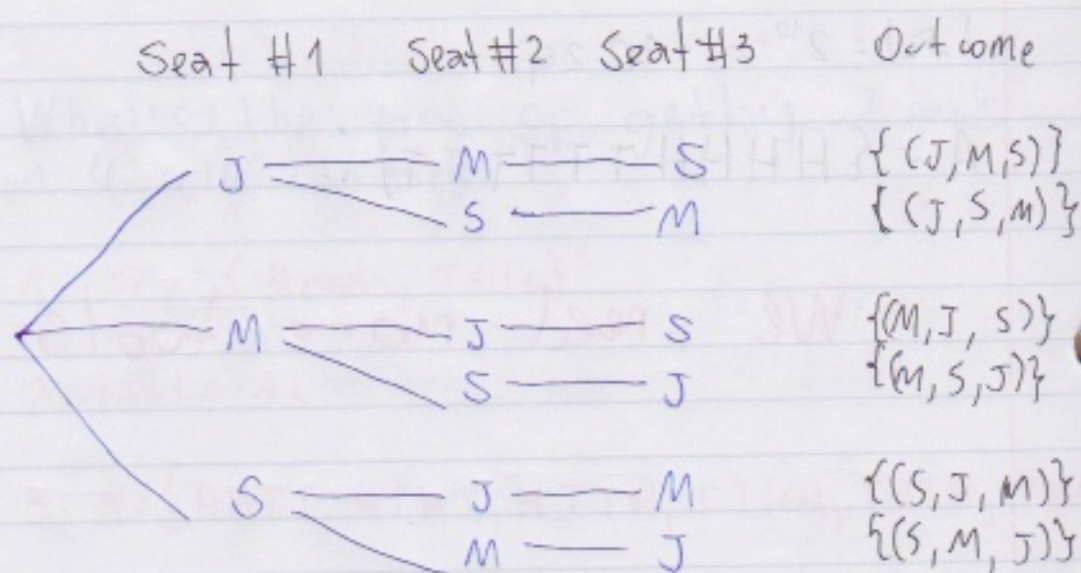 Seat #1 Seat #2 Seat #3 Outcome
J M S {(J,M,S)}
S M {(J,S,M)}
M J S {(M,J,S)}
S J {(M,S,J)}
S J M {(S,J,M)}
M J {(S,M,J)}